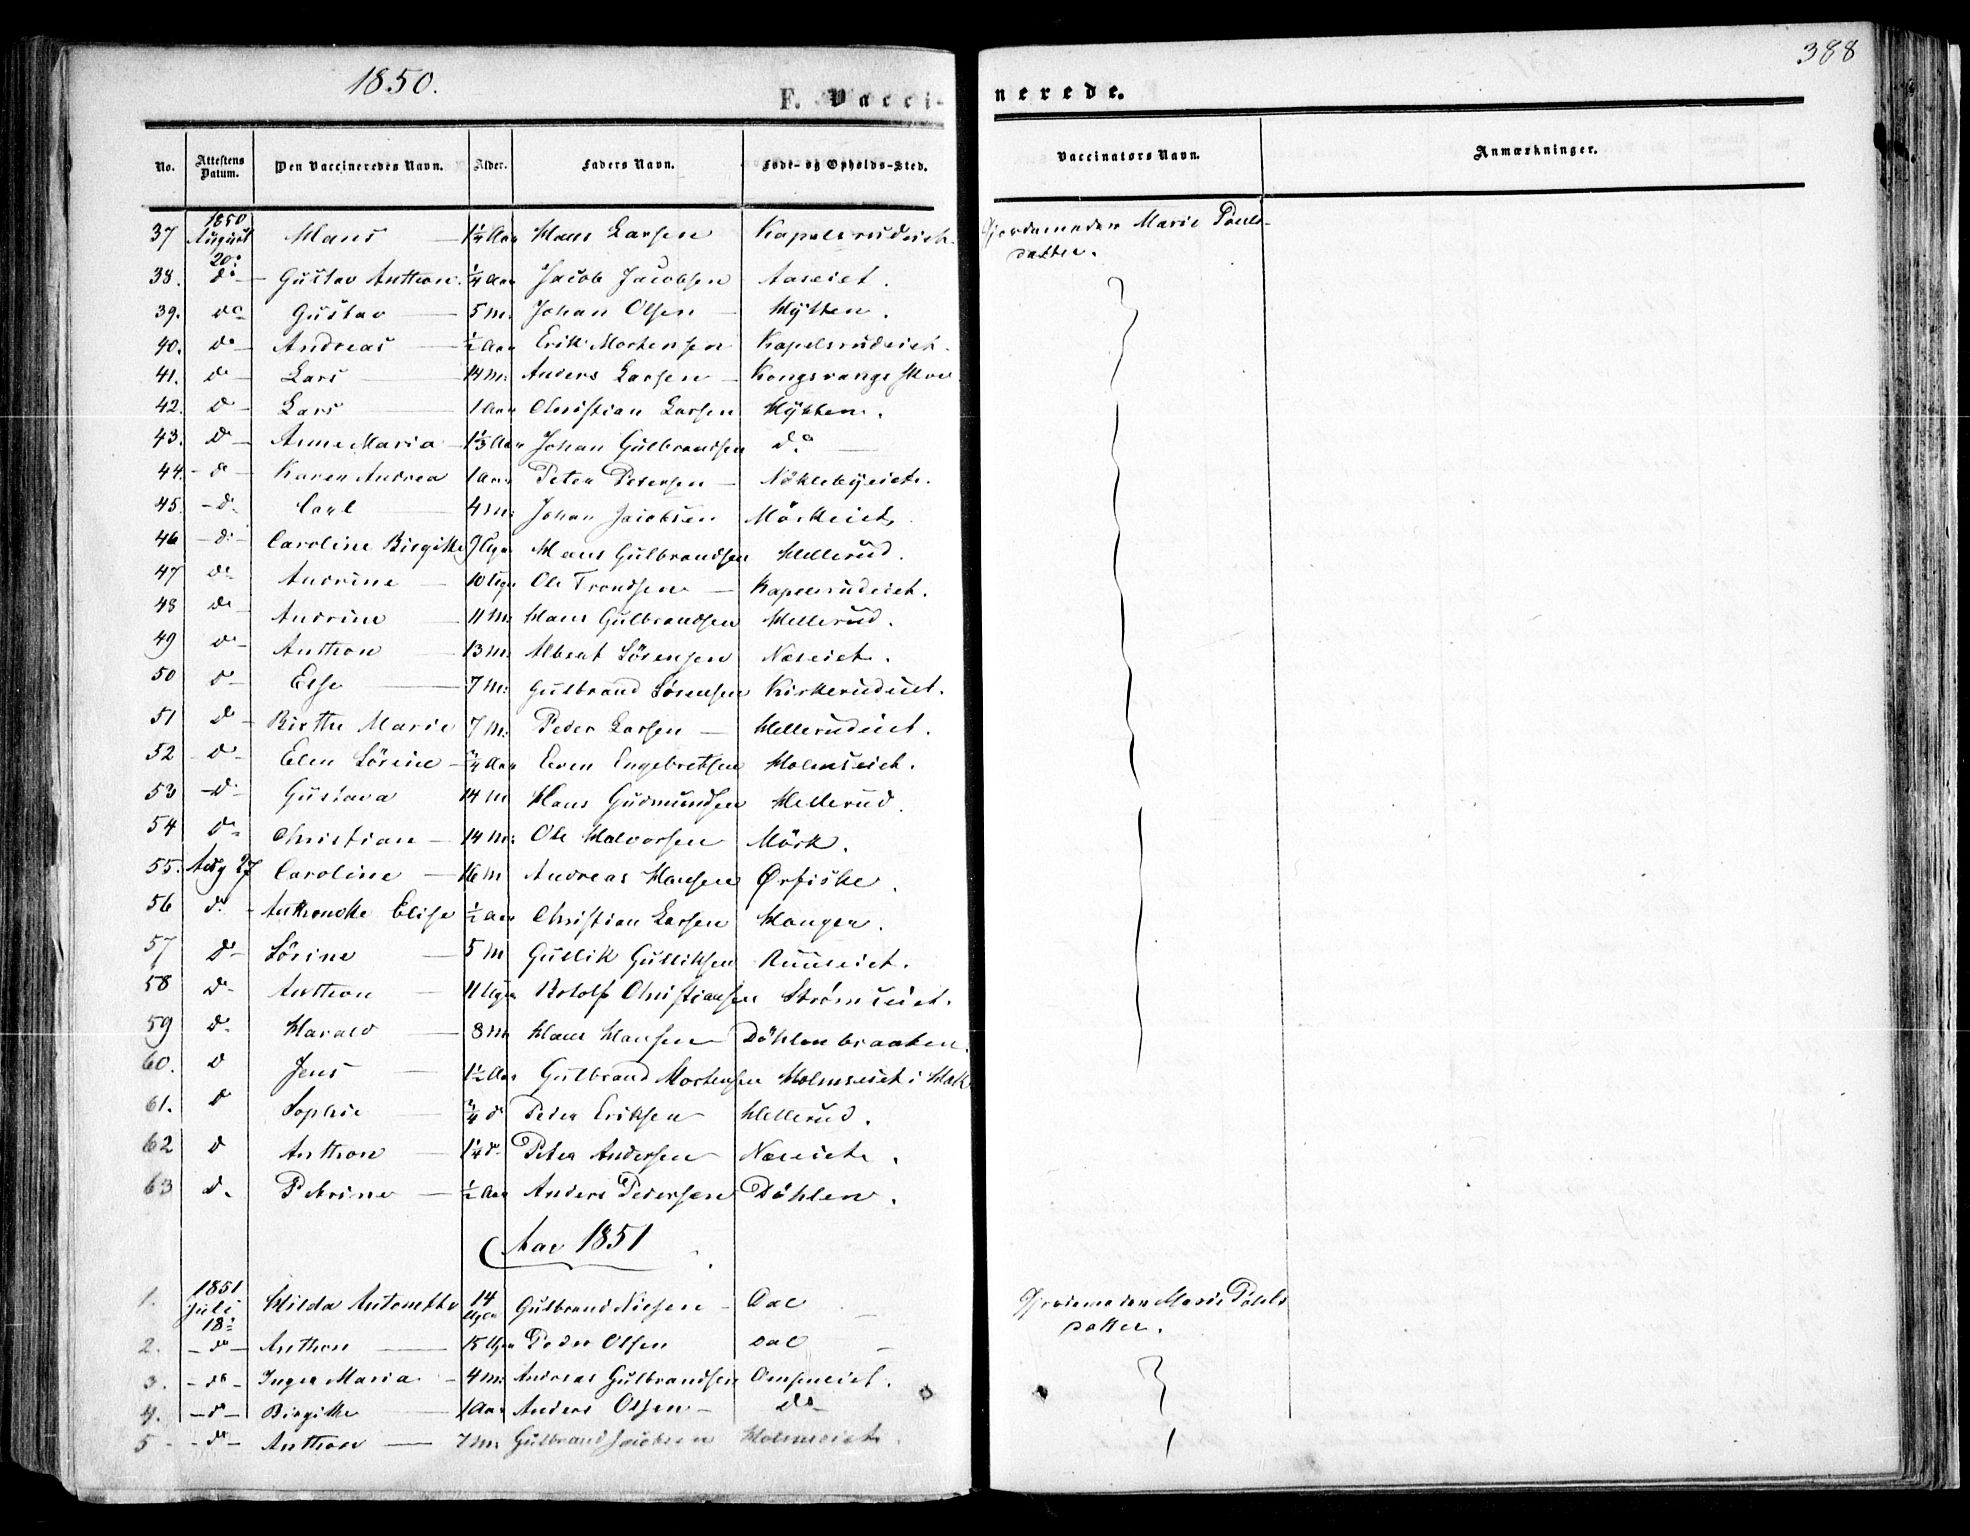 1850.
388
F. Vacci-
nerede.
No. Attestens Datum. Den Vaccineredes Navn. Alder. Faders Navn. Føde- og Opholds-Sted. Vaccinators Navn. Anmærkninger.
37 1850 August 20: Hans 1¼ Aar Hans Larsen Kapelsrudeiet Gjordemoder Marie Pouls-
datter.
38. do Gustav Anthon ¼ Aar Jacob Jacobsen Aaseiet.
39. do Gustav 5 M. Johan Olsen Hytten.
40. do Andreas ½ Aar Erik Mortensen Kapelsrudeiet.
41. do Lars 14 M: Anders Larsen Kongsvangs
42. do Lars 1 Aar Christian Larsen Hytten.
43. do Anne Maria 1⅓ Aar Johan Gulbrandsen do
44. do Karen Andrea 1 Aar Peter Petersen Nöklebyeiet.
45. do Carl 4 M: Johan Jacobsen Mörkeiet
46 do Caroline Birgitte Hans Gulbrandsen Hellerud.
47 do Andrine 10 Uger Ole Trondsen Kapelsrudeiet.
48 do Andrine 11 M: Hans Gulbrandsen Hellerud.
49 do Anthon 13 M: Albert Sörensen Næseiet.
50 do Else 7 M: Gulbrand Sörensen Kirkerudeiet.
51 do Birthe Marie 7 M: Peder Larsen Hellerudeiet.
52 do Elen Sörine ¾ Aar Even Engebretsen Holmseiet.
53 do Gustava 14 M Hans Gudmundsen Hellerud.
54 do Christian 14 M: Ole Halvorsen Mörk.
55. Aug 27 Caroline 16 M Andreas Hansen Ørfiske.
56 do Anthonette Elise ½ Aar Christian Larsen Hauger.
57 do Sörine 5 M Gullik Gulliksen Ruuseiet.
58 do Anthon 11 Uger Rololf Christiansen Strømseiet.
59 do Harald 8 M Hans Hansen Döhlenbraaten.
60. do Jens 1½ Aar Gulbrand Mortensen Holmseiet i Hak
61. do Sophie ¾ do Peder Eriksen Hellerud.
62 do Anthon 1¼ do Peter Andersen Næseiet.
63 do Petrine ½ Aar Anders Pedersen Döhlen.
Aar 1851
1. 1851 Juli 18: Hilda Antonette 14 Uger Gulbrand Nilsen Dal Gjordemoder Marie Pouls
datter.
2. do Anthon 15 Uger Peder Olsen Dal
3. do Inger Maria 4 M: Andreas Gulbrandsen
4. do Birgitte 1 Aar Anders Olsen do
5 do Anthon 7 M: Gulbrand Jacobsen Holmseiet.